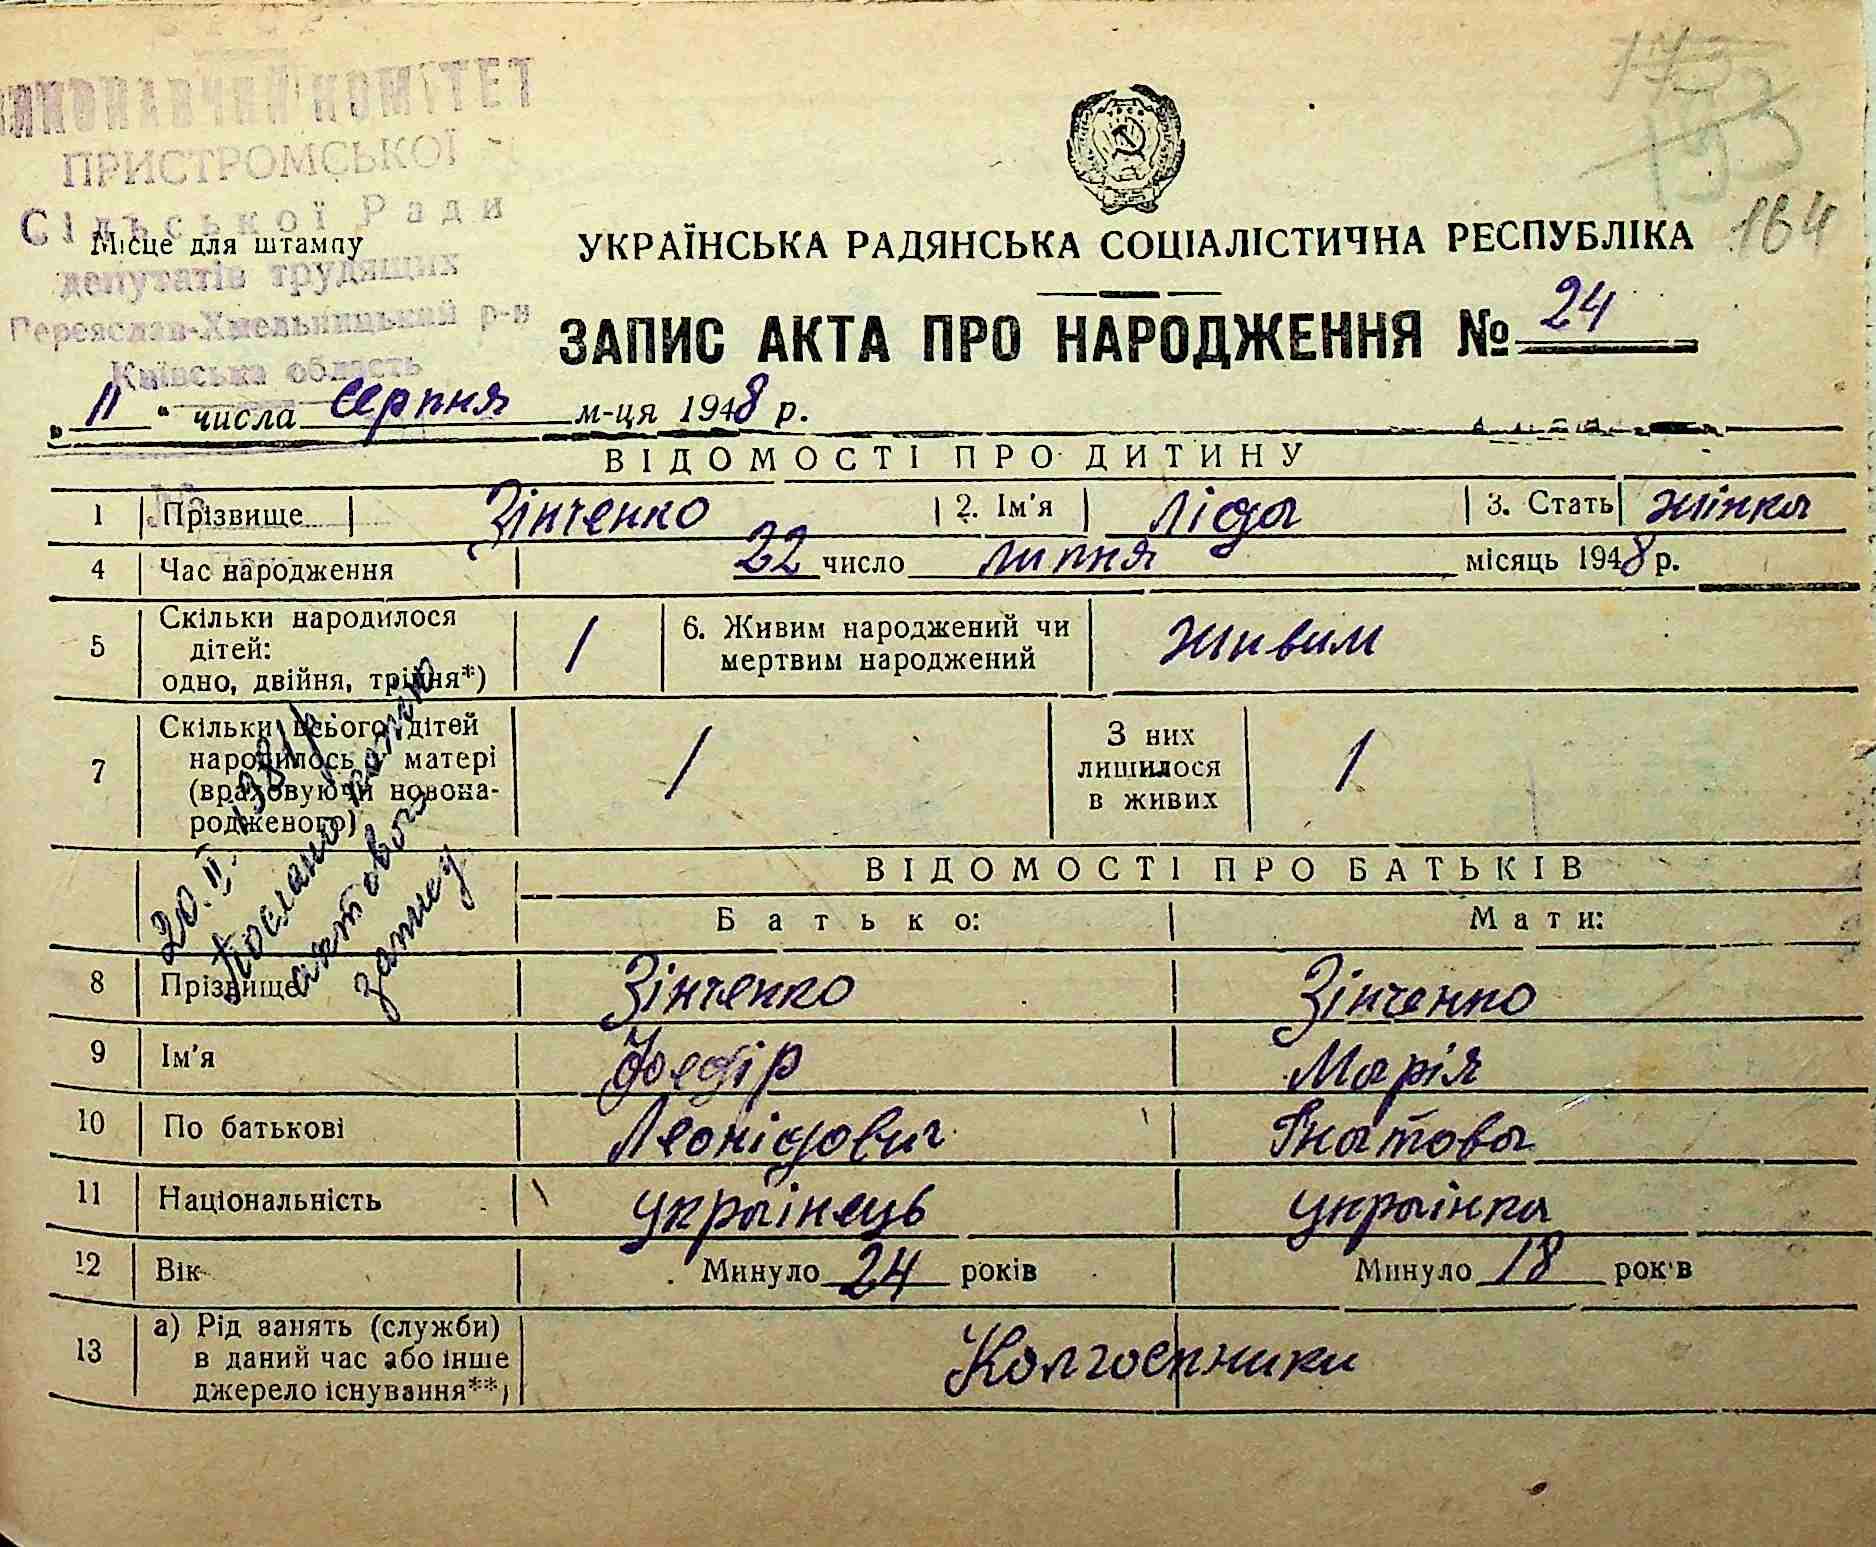 ВИКОНАВЧИЙ КОМІТЕТ
ПРИСТРОМСЬКОЇ
Сільської Ради
депутатів трудящих
Переяслав-Хмельницький р-н
Київська область
Місце для штампу
173
193
164
УКРАЇНСЬКА РАДЯНСЬКА СОЦІАЛІСТИЧНА РЕСПУБЛІКА
ЗАПИС АКТА ПРО НАРОДЖЕННЯ № 24
„ 11 “ числа серпня м-ця 1948 р.
ВІДОМОСТІ ПРО ДИТИНУ
1 Прізвище Зінченко 2. Ім'я Ліда 3. Стать жінка
4 Час народження 22 число липня місяць 1948 р.
5 Скільки народилося дітей: одно, двійня, трійня*) 1 6. Живим народжений чи мертвим народжений живим
7 Скільки всього дітей народилось у матері (враховуючи новонародженого) 1 З них лишилося в живих 1
20.II.1981р
Послано копію
актового
запису
ВІДОМОСТІ ПРО БАТЬКІВ
Батько: Мати:
8 Прізвище Зінченко Зінченко
9 Ім'я Федір Марія
10 По батькові Леонідович Гнатова
11 Національність українець українка
12 Вік Минуло 24 років Минуло 18 років
13 а) Рід занять (служби) в даний час або інше джерело існування**) Колгоспники